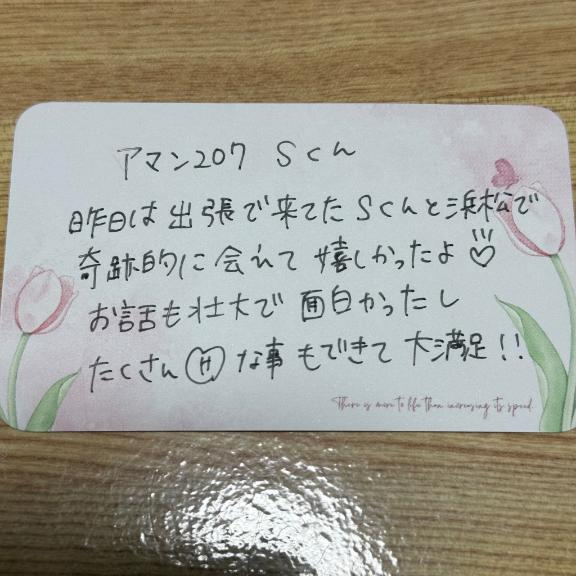 アマン207 Sくん
昨日は出張で来てたSくんと浜松で
奇跡的に会えて嬉しかったよ♡
お話も壮大で面白かったし
たくさんⒽな事もできて大満足!!
There is more to life than increasing its speed.